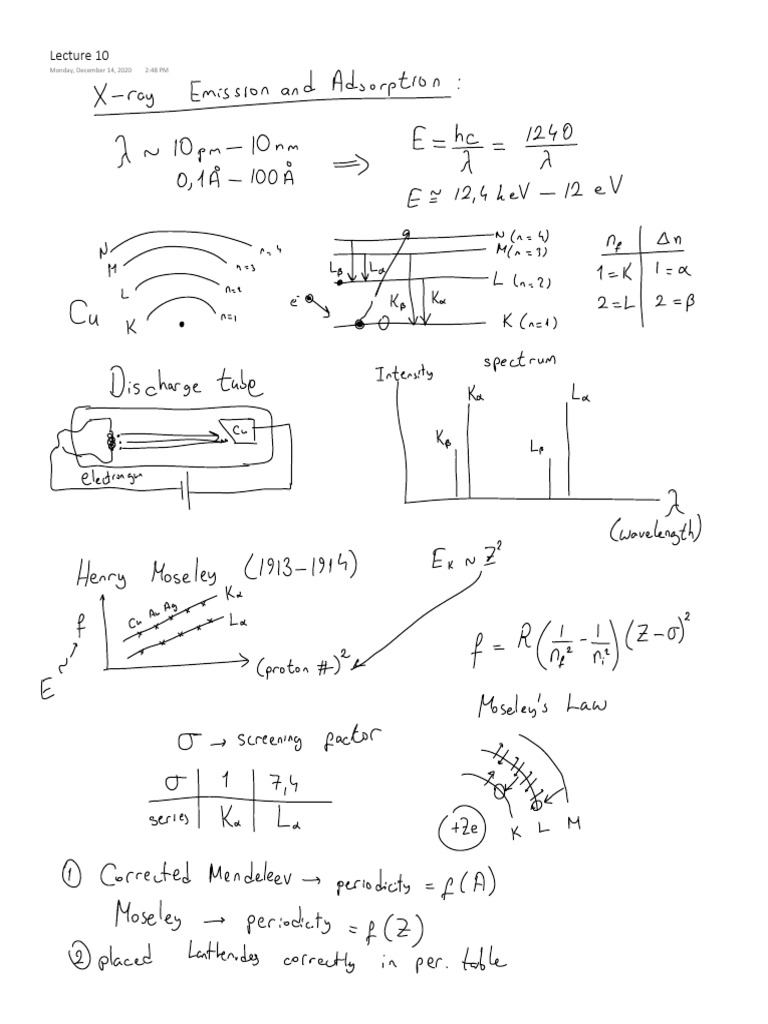 Lecture 10
Monday, December 14, 2020 2:48 PM
X-ray Emission and Adsorption :
λ ~ 10 pm – 10 nm
0,1Å – 100Å
⇒
E = hc/λ = 1240/λ
E ≅ 12,4 keV – 12 eV
N n=4
M n=3
L n=2
K n=1
Cu
N (n=4)
M (n=3)
L (n=2)
K (n=1)
Lβ Lα
Kβ Kα
e⁻
n_f | Δn
1=K | 1=α
2=L | 2=β
Discharge tube
Cu
electrongun
Intensity
spectrum
Kα
Lα
Kβ
Lβ
λ
(wavelength)
Henry Moseley (1913–1914)
E_K ~ Z²
f
Cu Au Ag
Kα
Lα
(proton #)²
E ~
f = R(1/n_f² - 1/n_i²)(Z-σ)²
Moseley's Law
σ → screening factor
σ | 1 | 7,4
series | Kα | Lα
+Ze
K L M
① Corrected Mendeleev → periodicity = f(A)
Moseley → periodicity = f(Z)
② placed Lanthenides correctly in per. table